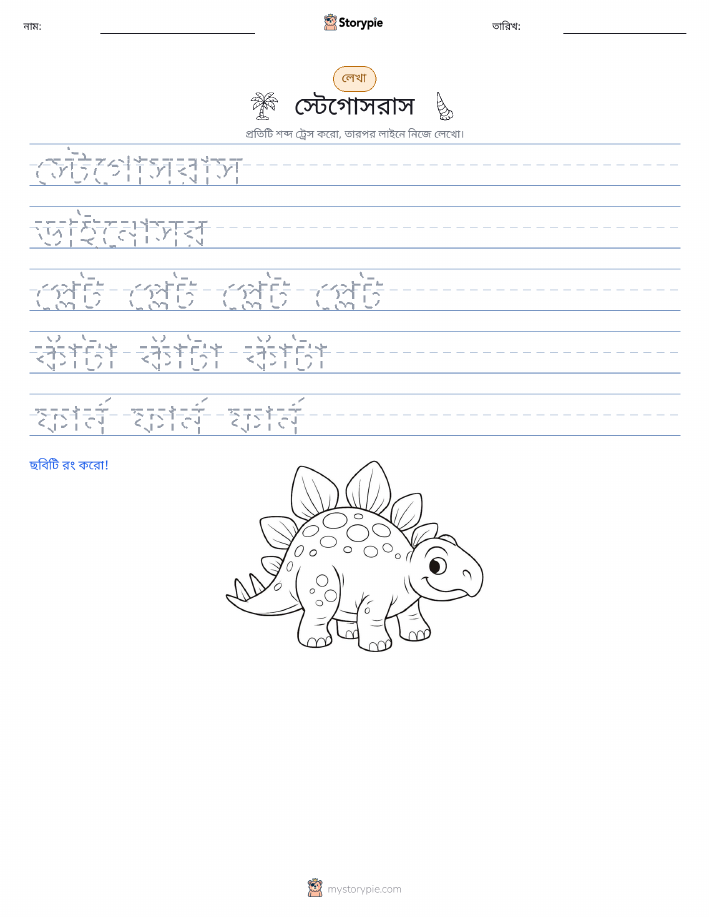 নাম: Storypie তারিখ:
লেখা
স্টেগোসরাস
প্রতিটি শব্দ ট্রেস করো, তারপর লাইনে নিজে লেখো।
স্টেগোসরাস
ডাইনোসর
প্লেট প্লেট প্লেট প্লেট
কাঁটা কাঁটা কাঁটা
ফার্ন ফার্ন ফার্ন
ছবিটি রং করো!
mystorypie.com